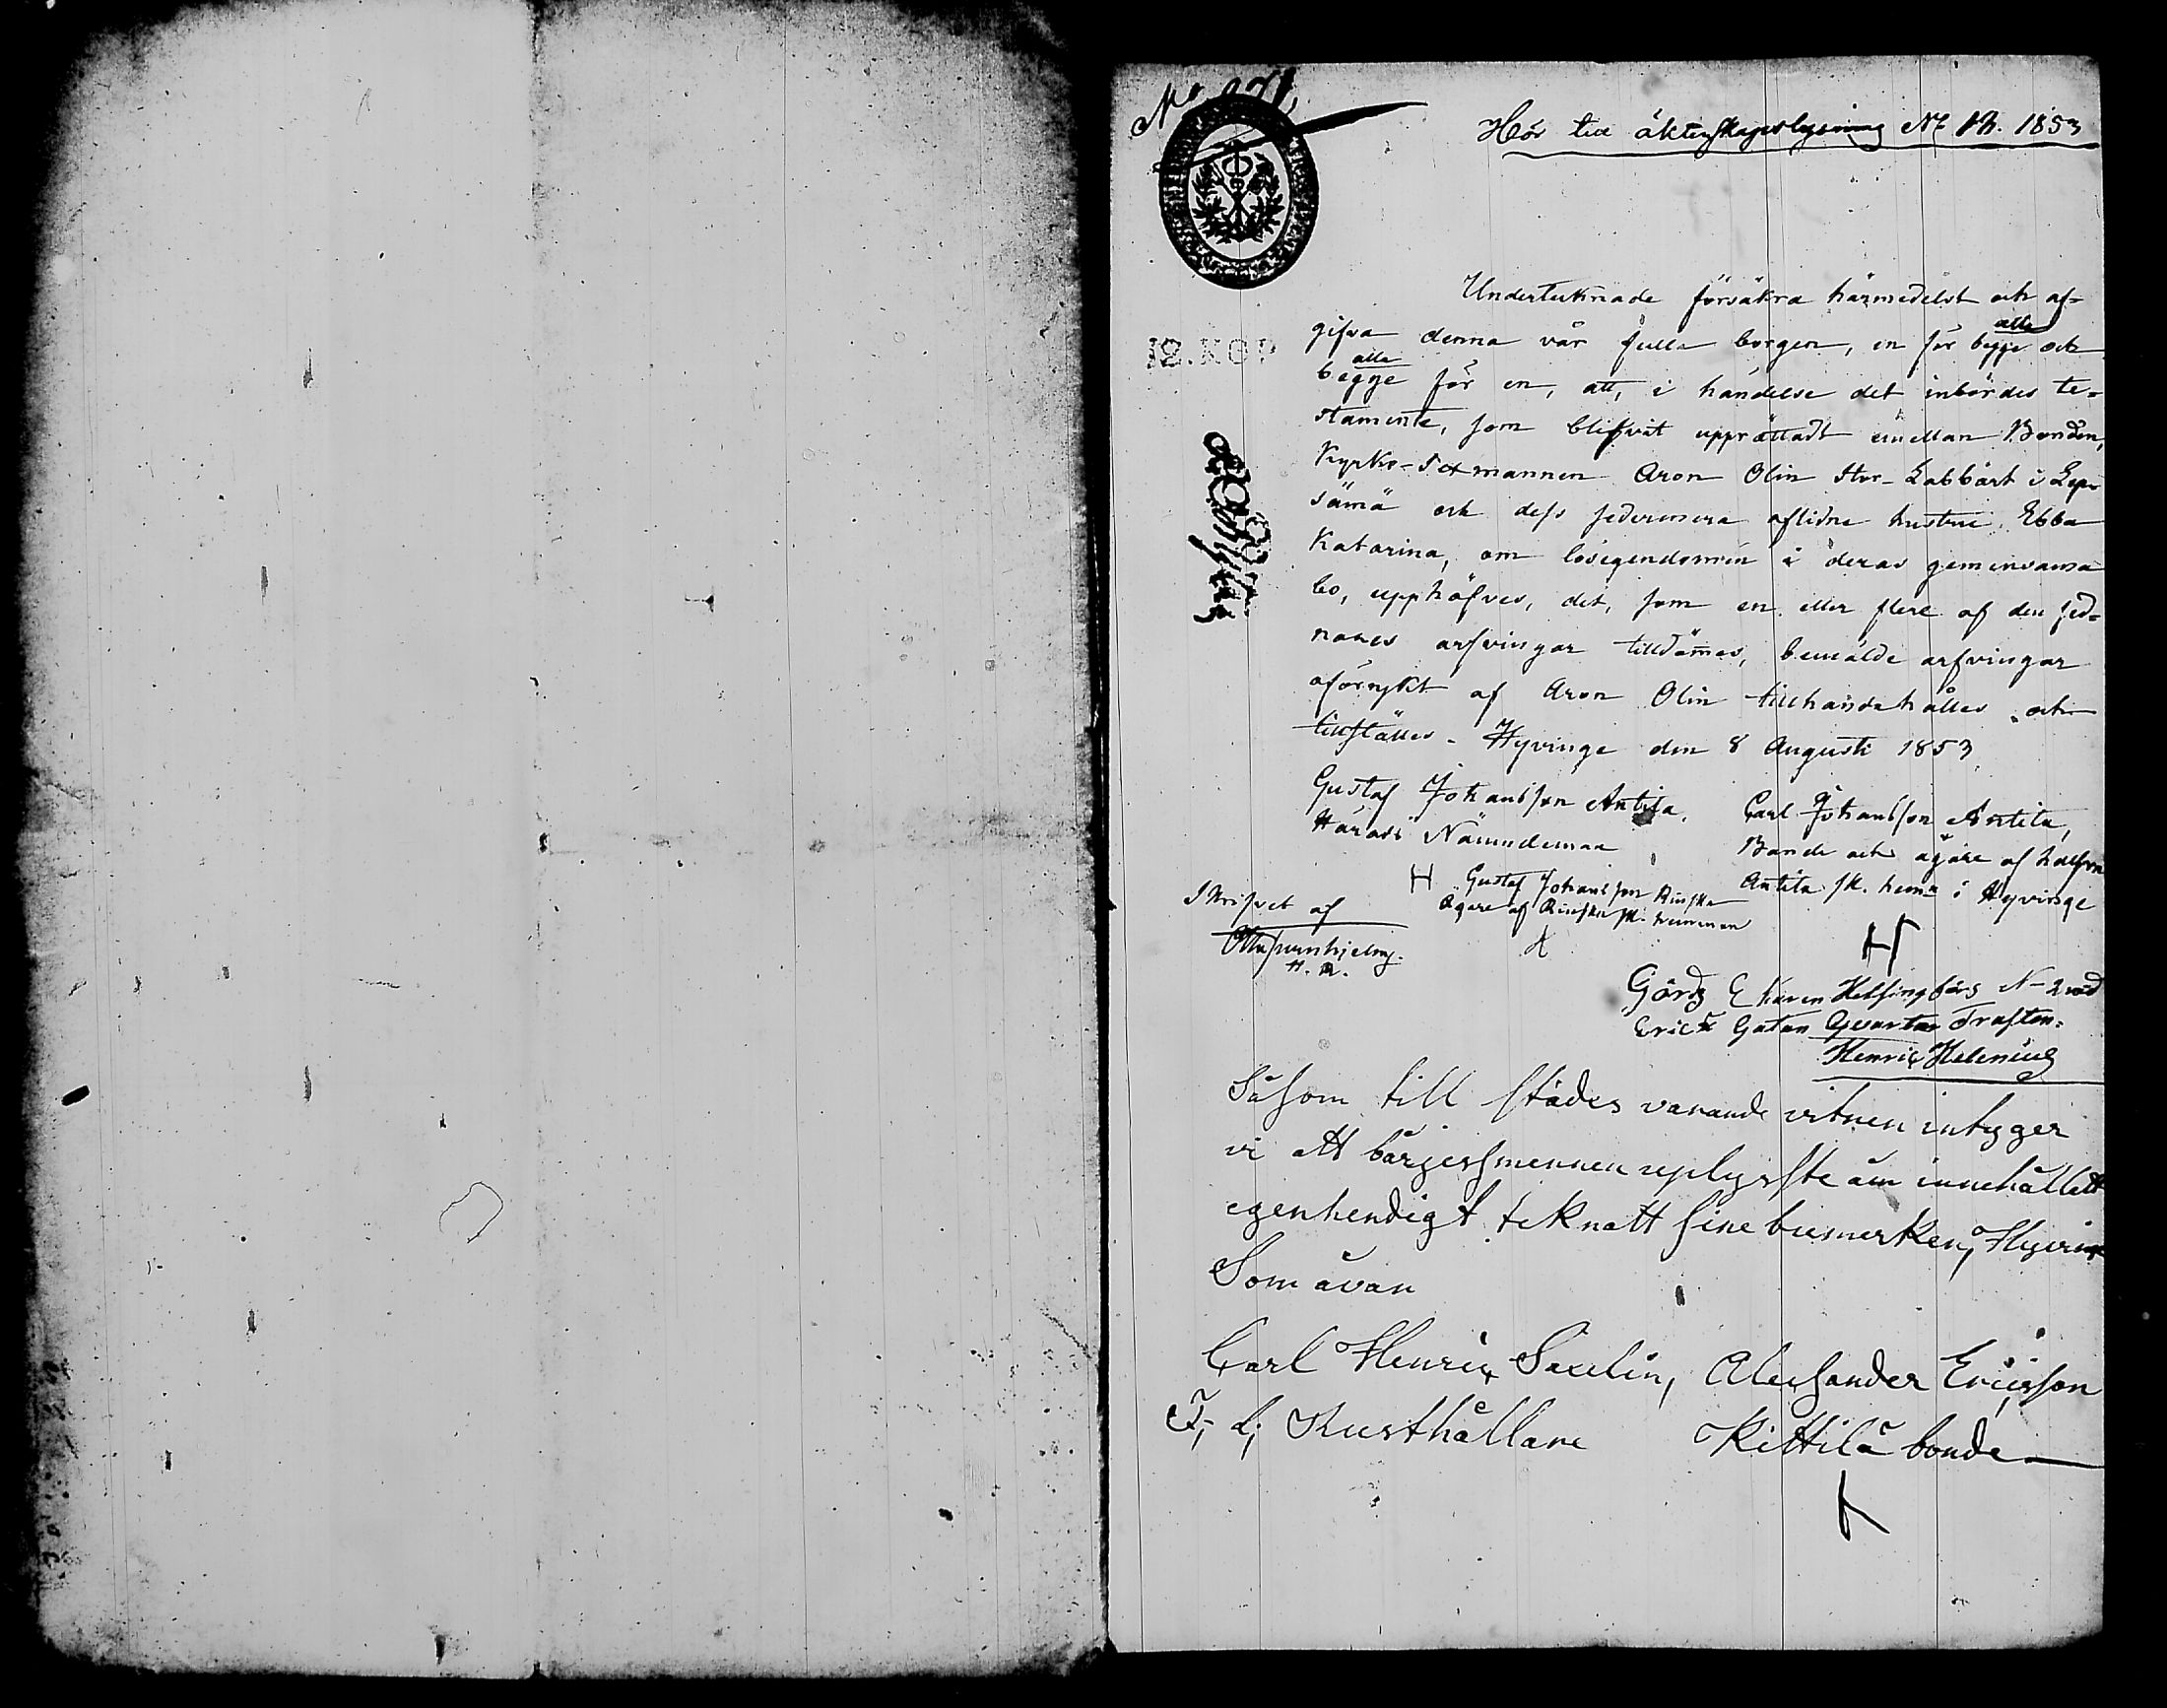 Hör till äktenskapslysning No 13. 1853
Undertecknade försäkra härmedelst och af-
gifva denna vår fulla borgen, en för begge alla och
begge alla för en, att, i händelse det inbördes te-
stamente, som blifvit upprättadt emellan Bonden,
Kyrko-Sexmannen Aron Olin Stor-Labbart i Lep-
sämä och dess sedermera aflidne hustru Ebba
Katarina, om lösegendomen i deras gemensama
bo, upphäfves, det, som en eller flere af den sed-
nares arfvingar tilldömes, bemälde arfvingar
oförrykt af Aron Olin tillhandahålles och
tillställes. Hyvinge den 8 Augusti 1853
Gustaf Johansson Antila, Carl Johansson Antila,
Härads Nämndeman Bonde och ägare af halfva
Antila sk. hemn i Hyvinge
H Gustaf Johansson
Ägare af sk. hemman
Skrifvet af
H
Helsingfors N 2 vid
Erics Gatan Qvartar Trasten.
Henric Helenius
Såsom till städes varande vitnen intyger
vi att bårgesmennen uplyste åm innehållett
egenhendigt teknatt sine bumerken, Hyvinge
Som åvan
Carl Henric Saxelin, Alexsander Ericsson
F, d, Rusthållare Kittilä bonde
12. KOP